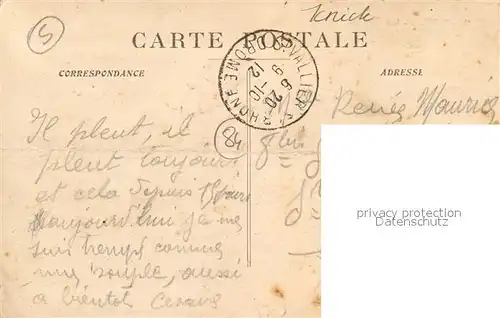 5
CARTE POSTALE
CORRESPONDANCE
ADRESSE
St VALLIER S/ RHONE DROME
6
20-10
12
84
Renée Maurice
Il pleut, il
pleut toujours
et cela depuis 15 jours
aujourd'hui je me
suis trempé comme
une soupe, aussi
à bientot
privacy protection
Datenschutz